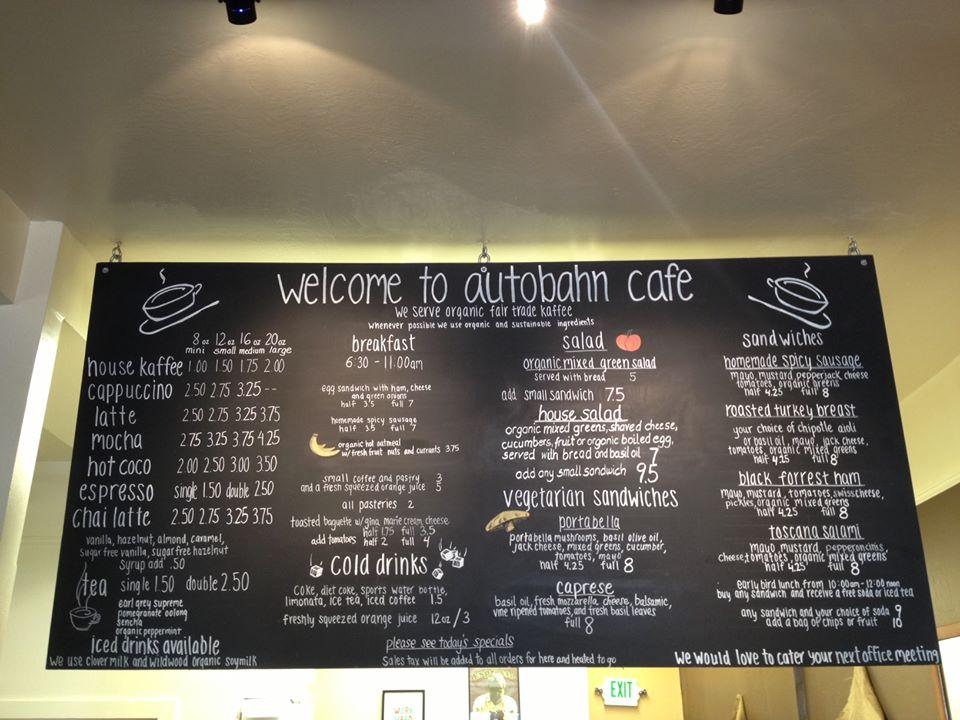 welcome to autobahn cafe
we serve organic fair trade kaffee
whenever possible we use organic and sustainable ingredients
8 oz 12 oz 16 oz 20 oz
mini small medium large
house kaffee 1.00 1.50 1.75 2.00
cappuccino 2.50 2.75 3.25 --
latte 2.50 2.75 3.25 3.75
mocha 2.75 3.25 3.75 4.25
hot coco 2.00 2.50 3.00 3.50
espresso single 1.50 double 2.50
chai latte 2.50 2.75 3.25 3.75
vanilla, hazelnut, almond, caramel,
sugar free vanilla, sugar free hazelnut
syrup add .50
tea single 1.50 double 2.50
earl grey supreme
pomegranate oolong
sencha
organic peppermint
iced drinks available
we use clover milk and wildwood organic soymilk
breakfast
6:30 - 11:00am
egg sandwich with ham, cheese
and green onions
half 3.5 full 7
homemade spicy sausage
half 3.5 full 7
organic hot oatmeal
w/fresh fruit nuts and currants 3.75
small coffee and pastry 3
and a fresh squeezed orange juice 5
all pasteries 2
toasted baguette w/gina marie cream cheese
half 1.75 full 3.5
add tomatoes half 2 full 4
cold drinks
coke, diet coke, sports water bottle,
limonata, ice tea, iced coffee 1.5
freshly squeezed orange juice 12oz/3
please see today's specials
Sales tax will be added to all orders for here and heated to go
salad
organic mixed green salad
served with bread 5
add small sandwich 7.5
house salad
organic mixed greens, shaved cheese,
cucumbers, fruit or organic boiled egg,
served with bread and basil oil 7
add any small sandwich 9.5
vegetarian sandwiches
portabella
portabella mushrooms, basil olive oil,
jack cheese, mixed greens, cucumber,
tomatoes, mayo
half 4.25 full 8
caprese
basil oil, fresh mozzarella cheese, balsamic,
vine ripened tomatoes, and fresh basil leaves
full 8
sandwiches
homemade spicy sausage
mayo, mustard, pepperjack cheese
tomatoes, organic greens
half 4.25 full 8
roasted turkey breast
your choice of chipotle aioli
or basil oil, mayo, jack cheese,
tomatoes, organic mixed greens
half 4.25 full 8
black forrest ham
mayo, mustard, tomatoes, swiss cheese,
pickles, organic mixed greens
half 4.25 full 8
toscana salami
mayo, mustard, pepperoncinis,
cheese, tomatoes, organic mixed greens
half 4.25 full 8
early bird lunch from 10:00am - 12:00 noon
buy any sandwich and receive a free soda or iced tea
any sandwich and your choice of soda 9
add a bag of chips or fruit 10
we would love to cater your next office meeting
EXIT